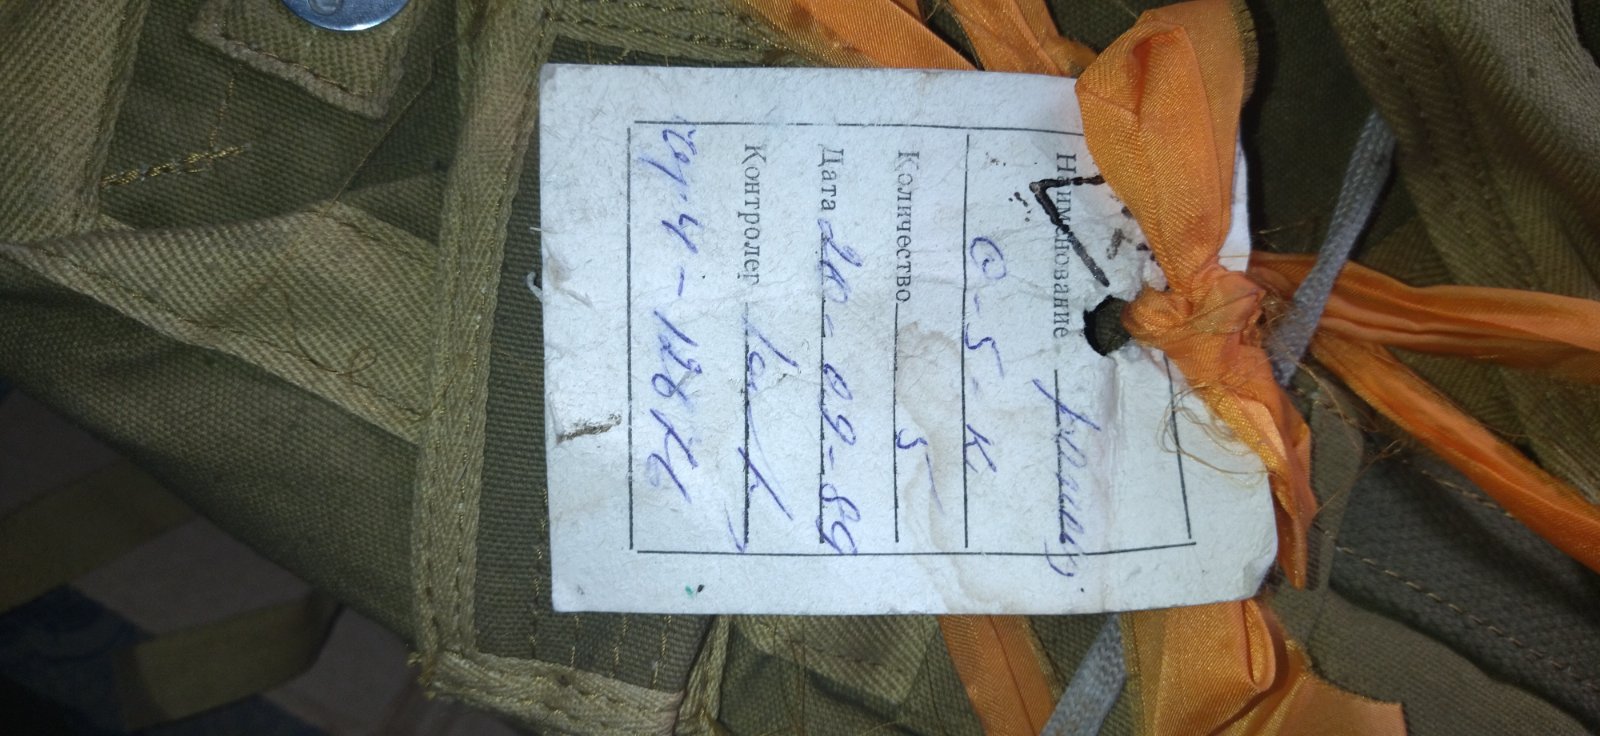 Наименование
О-5-К
Количество 5
Дата 20-09-89
Контролер
4-128К